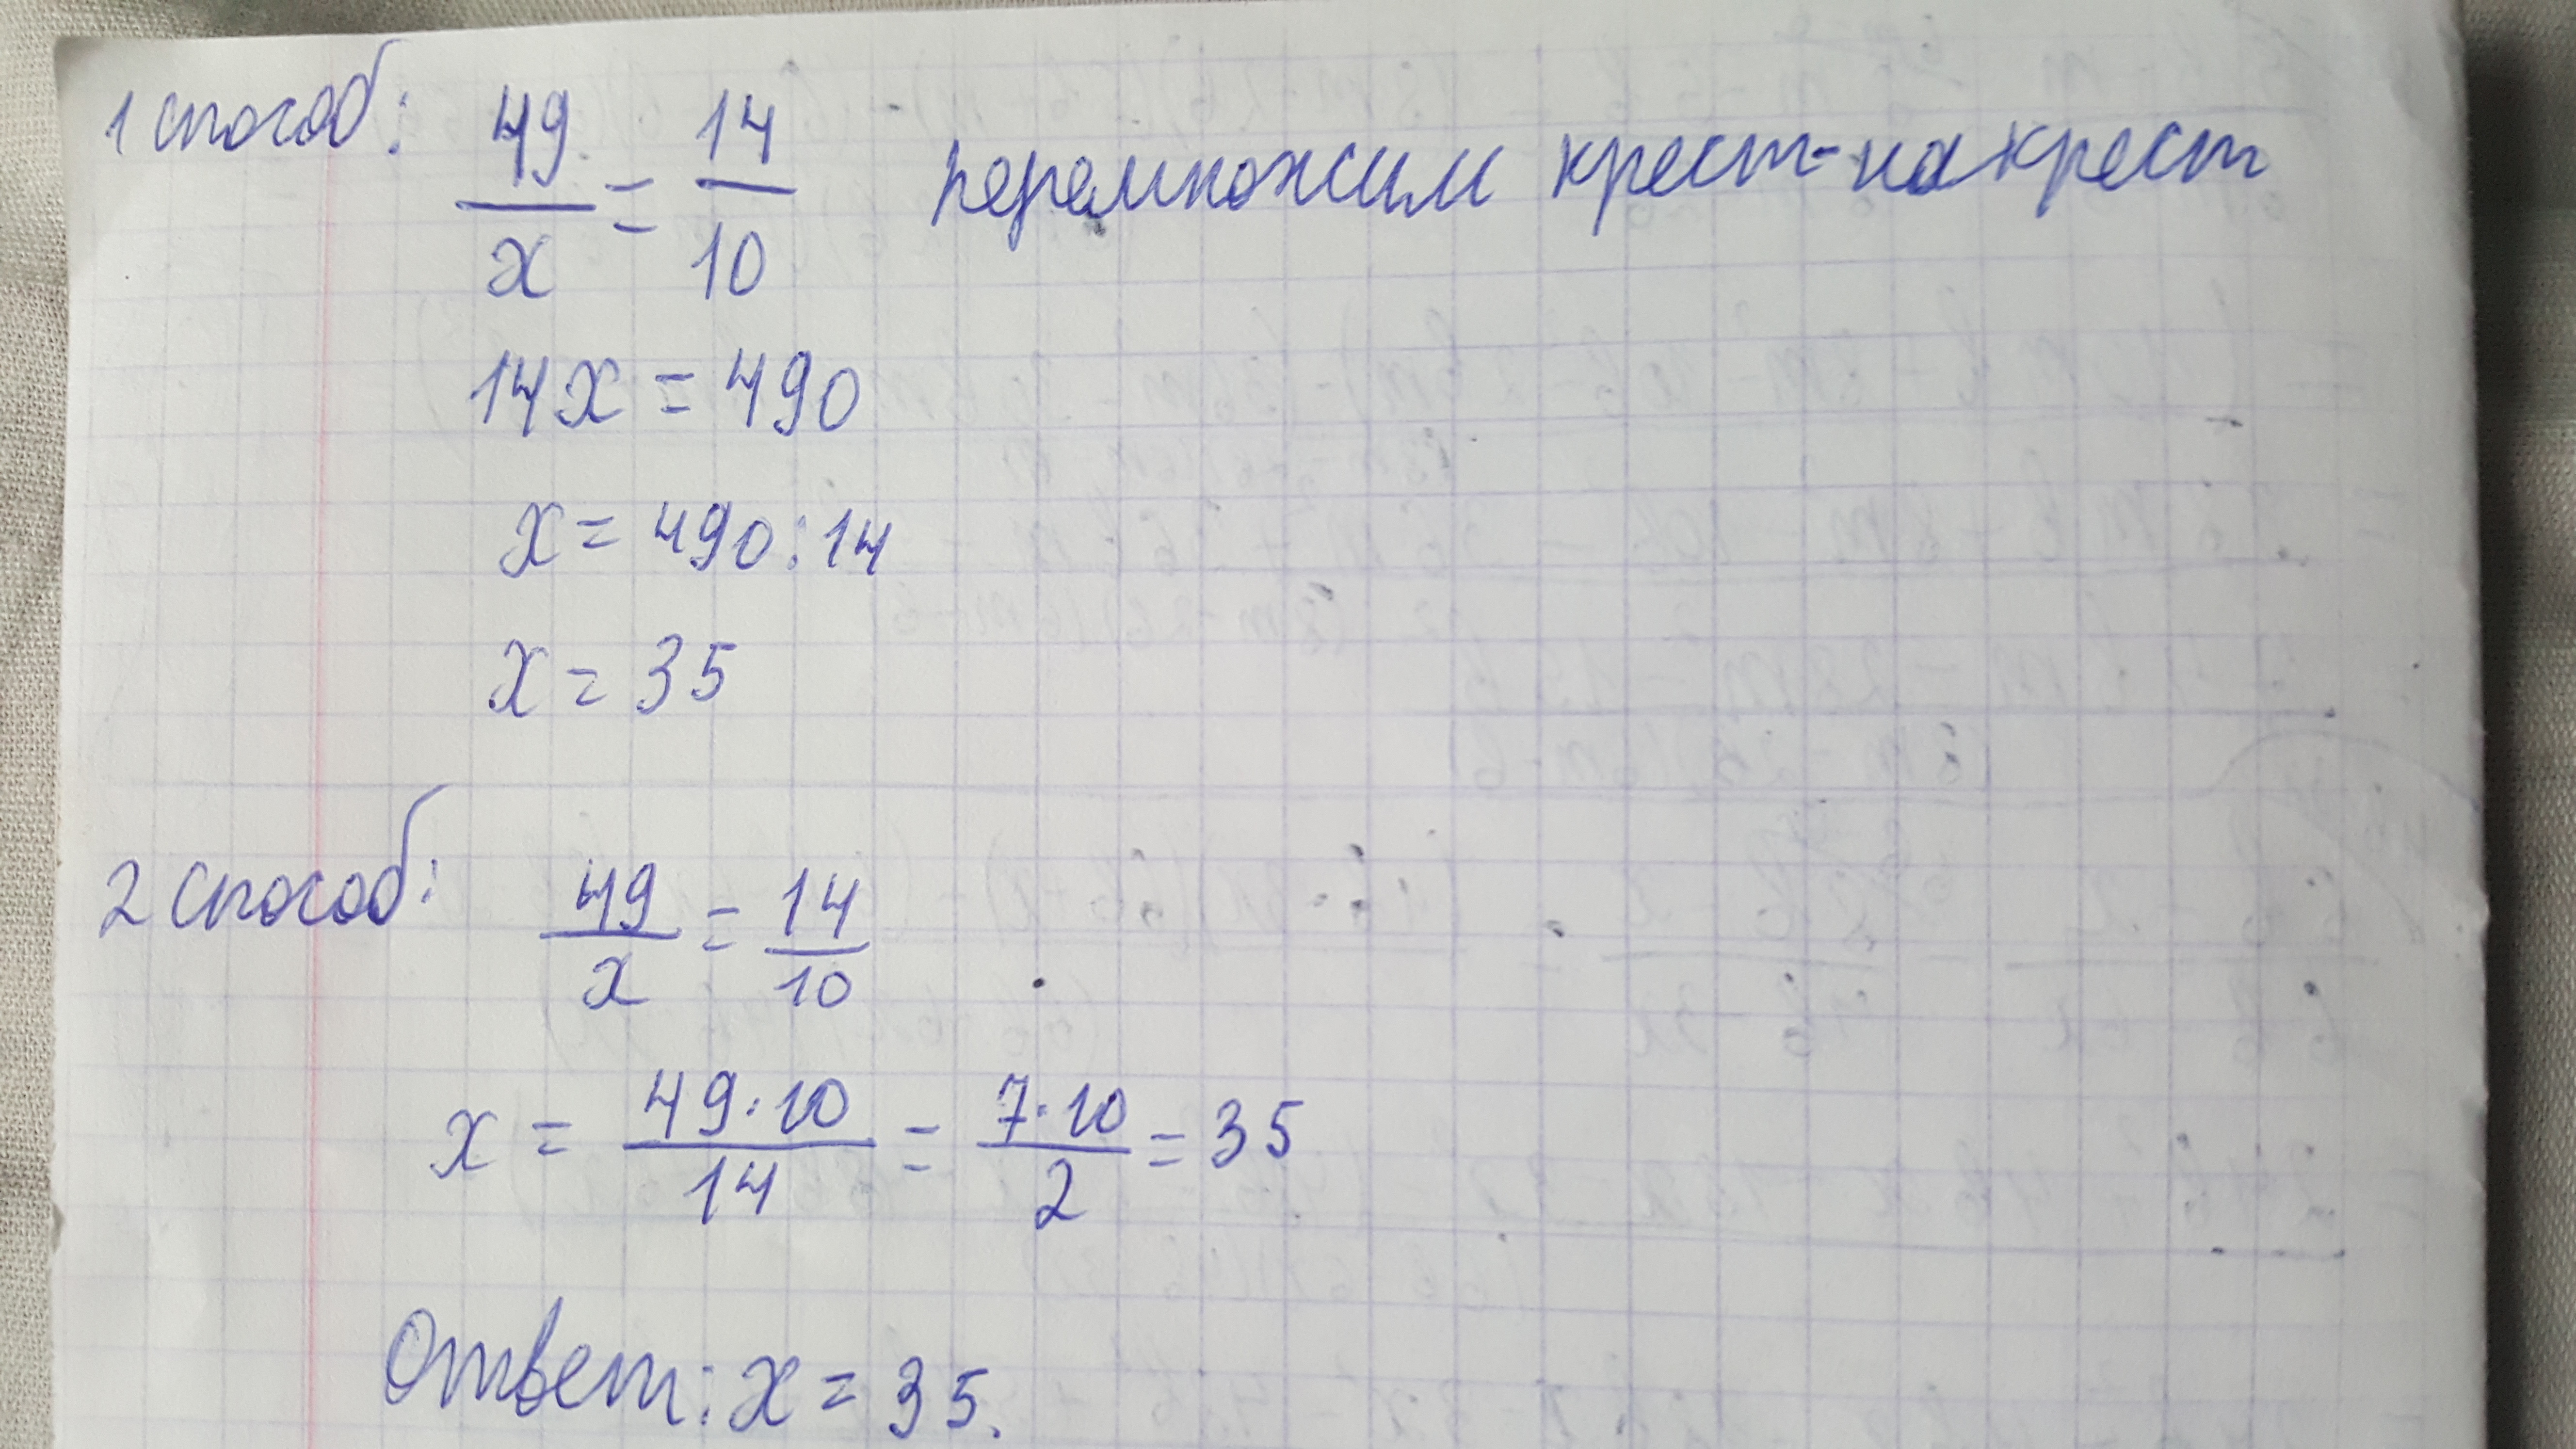 1 способ: 49/x = 14/10 перемножим крест-накрест
14x = 490
x = 490:14
x = 35
2 способ: 49/x = 14/10
x = 49·10/14 = 7·10/2 = 35
Ответ: x = 35.